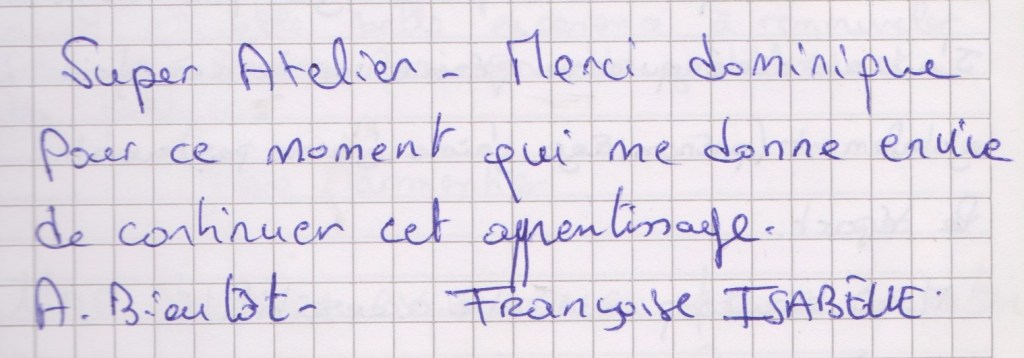 Super Atelier - Merci dominique
Pour ce moment qui me donne envie
de continuer cet apprentissage.
A. Bientôt - Françoise ISABELLE